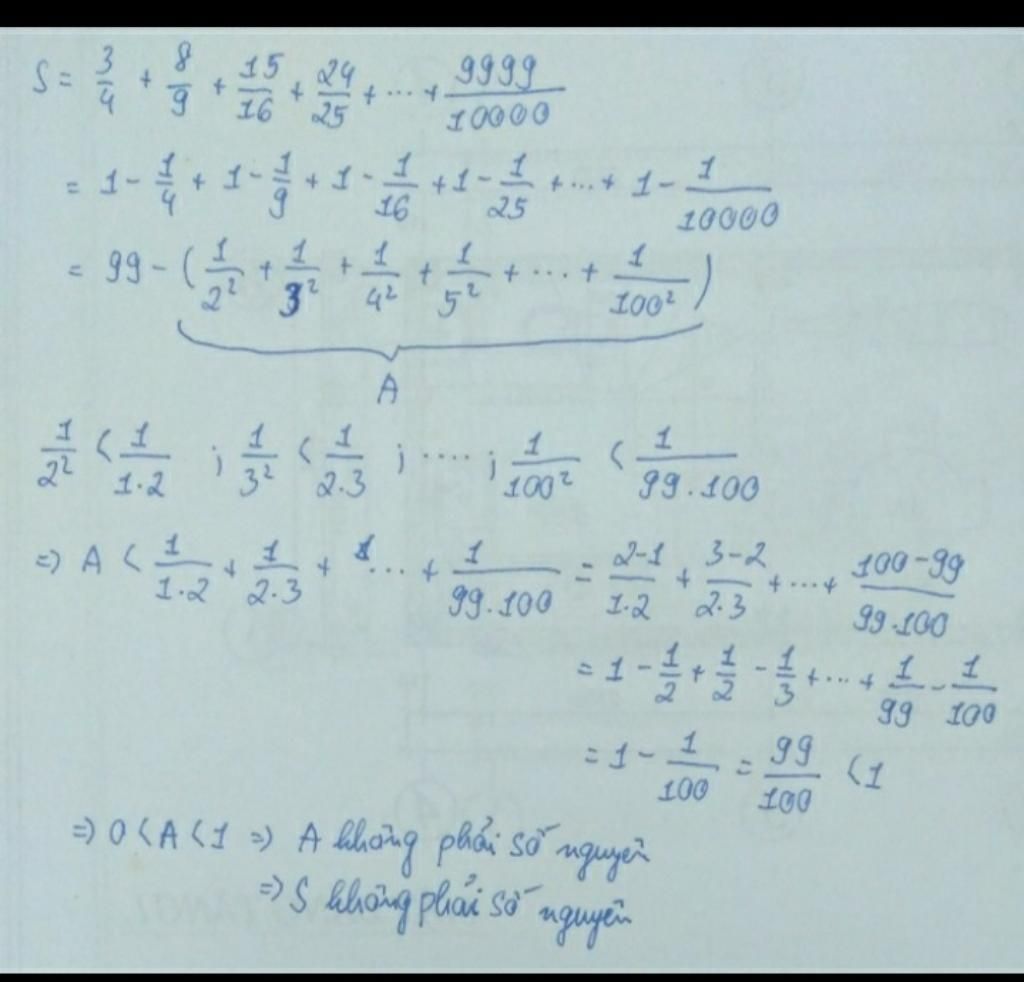 S = 3/4 + 8/9 + 15/16 + 24/25 + ... + 9999/10000
= 1 - 1/4 + 1 - 1/9 + 1 - 1/16 + 1 - 1/25 + ... + 1 - 1/10000
= 99 - (1/2² + 1/3² + 1/4² + 1/5² + ... + 1/100²)
A
1/2² < 1/1.2 ; 1/3² < 1/2.3 ; .... ; 1/100² < 1/99.100
=) A < 1/1.2 + 1/2.3 + ... + 1/99.100 = 2-1/1.2 + 3-2/2.3 + ... + 100-99/99.100
= 1 - 1/2 + 1/2 - 1/3 + ... + 1/99 - 1/100
= 1 - 1/100 = 99/100 < 1
=) 0 < A < 1 =) A không phải số nguyên
=) S không phải số nguyên